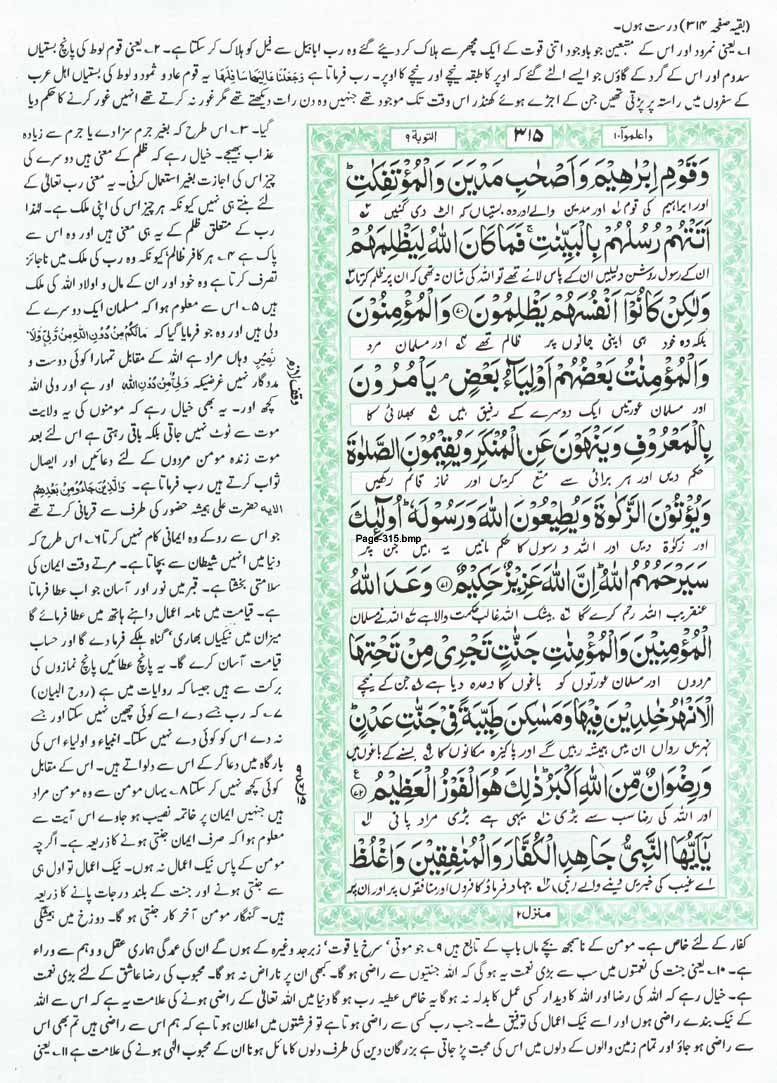 (بقیہ صفحہ ۳۱۴) درست ہوں۔
۱؎ یعنی نمرود اور اس کے متبعین جو باوجود اتنی قوت کے ایک مچھر سے ہلاک کر دیئے گئے وہ رب ابابیل سے فیل کو ہلاک کر سکتا ہے۔ ۲؎ یعنی قوم لوط کی پانچ بستیاں
سدوم اور اس کے گرد کے گاؤں جو ایسے الٹے گئے کہ اوپر کا طبقہ نیچے اور نیچے کا اوپر۔ رب فرماتا ہے وَجَعَلْنَا عَالِيَهَا سَافِلَهَا یہ قوم عاد و ثمود و لوط کی بستیاں اہل عرب
کے سفروں میں راستہ پر پڑتی تھیں جن کے اجڑے ہوئے کھنڈر اس وقت تک موجود تھے جنہیں وہ دن رات دیکھتے تھے مگر غور نہ کرتے تھے انہیں غور کرنے کا حکم دیا
گیا۔ ۳؎ اس طرح کہ بغیر جرم سزا دے یا جرم سے زیادہ
عذاب بھیجے۔ خیال رہے کہ ظلم کے معنی ہیں دوسرے کی
چیز اس کی اجازت بغیر استعمال کرنی۔ یہ معنی رب تعالیٰ کے
لئے بنتے ہی نہیں کیونکہ ہر چیز اس کی اپنی ملک ہے۔ لہٰذا
رب کے متعلق ظلم کے یہ ہی معنی ہیں اور وہ اس سے
پاک ہے ۴؎ ہر کافر ظالم' کیونکہ وہ رب کی ملک میں ناجائز
تصرف کرتا ہے وہ خود اور ان کے مال و اولاد اللہ کی ملک
ہیں ۵؎ اس سے معلوم ہوا کہ مسلمان ایک دوسرے کے
ولی ہیں اور وہ جو فرمایا گیا کہ مَالَكُمْ مِنْ دُوْنِ اللّٰهِ مِنْ وَّلِيٍّ وَّلَا
نَصِيْرٍ وہاں مراد ہے اللہ کے مقابل تمہارا کوئی دوست و
مددگار نہیں غرضیکہ وَلِيٌّ مِنْ دُوْنِ اللّٰه اور ہے اور ولی اللہ
کچھ اور۔ یہ بھی خیال رہے کہ مومنوں کی یہ ولایت
موت سے ٹوٹ نہیں جاتی بلکہ باقی رہتی ہے اس لئے بعد
موت زندہ مومن مردوں کے لئے دعائیں اور ایصال
ثواب کرتے ہیں رب فرماتا ہے۔ وَالَّذِيْنَ جَاءُوْ مِنْ بَعْدِهِمْ
الایہ حضرت علی ہمیشہ حضور کی طرف سے قربانی کرتے تھے
جو اس سے روکے وہ ایمانی کام نہیں کرتا ۶؎ اس طرح کہ
دنیا میں انہیں شیطان سے بچاتا ہے۔ مرتے وقت ایمان کی
سلامتی بخشتا ہے۔ قبر میں نور اور آسان جواب عطا فرماتا
ہے۔ قیامت میں نامہ اعمال داہنے ہاتھ میں عطا فرمائے گا
میزان میں نیکیاں بھاری' گناہ ہلکے فرما دے گا اور حساب
قیامت آسان کرے گا۔ یہ پانچ عطائیں پانچ نمازوں کی
برکت سے ہیں جیسا کہ روایات میں ہے (روح البیان)
۷؎ کہ رب جسے دے اسے کوئی چھین نہیں سکتا اور جسے
نہ دے اس کو کوئی دے نہیں سکتا۔ انبیاء و اولیاء اس کی
بارگاہ میں دعا کر کے اس سے دلواتے ہیں۔ اس کے مقابل
کوئی کچھ نہیں کر سکتا ۸؎ یہاں مومن سے وہ مومن مراد
ہیں جنہیں ایمان پر خاتمہ نصیب ہو جاوے اس آیت سے
معلوم ہوا کہ صرف ایمان جنتی ہونے کا ذریعہ ہے۔ اگرچہ
مومن کے پاس نیک اعمال نہ ہوں۔ نیک اعمال تو اول ہی
سے جنتی ہونے اور جنت کے بلند درجات پانے کا ذریعہ
ہیں۔ گنہگار مومن آخر کار جنتی ہو گا۔ دوزخ میں ہمیشگی
وقف لازم
واعلموآ۱۰
۳۱۵
التوبة ۹
وَقَوْمِ اِبْرٰهِيْمَ وَاَصْحٰبِ مَدْيَنَ وَالْمُؤْتَفِكٰتِ ؕ
اور ابراہیم کی قوم ۱؎ اور مدین والے اور وہ بستیاں کہ الٹ دی گئیں ۲؎
اَتَتْهُمْ رُسُلُهُمْ بِالْبَيِّنٰتِ ۚ فَمَا كَانَ اللّٰهُ لِيَظْلِمَهُمْ
ان کے رسول روشن دلیلیں ان کے پاس لائے تھے تو اللہ کی شان نہ تھی کہ ان پر ظلم کرتا ۳؎
وَلٰكِنْ كَانُوْٓا اَنْفُسَهُمْ يَظْلِمُوْنَ ﴿۷۰﴾ وَالْمُؤْمِنُوْنَ
بلکہ وہ خود ہی اپنی جانوں پر ظالم تھے ۴؎ اور مسلمان مرد
وَالْمُؤْمِنٰتُ بَعْضُهُمْ اَوْلِيَآءُ بَعْضٍ ۘ يَاْمُرُوْنَ
اور مسلمان عورتیں ایک دوسرے کے رفیق ہیں ۵؎ بھلائی کا
بِالْمَعْرُوْفِ وَيَنْهَوْنَ عَنِ الْمُنْكَرِ وَيُقِيْمُوْنَ الصَّلٰوةَ
حکم دیں اور ہر برائی سے منع کریں اور نماز قائم رکھیں
وَيُؤْتُوْنَ الزَّكٰوةَ وَيُطِيْعُوْنَ اللّٰهَ وَرَسُوْلَهٗ ؕ اُولٰٓئِكَ
Page-315.bmp
اور زکوٰۃ دیں اور اللہ و رسول کا حکم مانیں یہ ہیں جن پر
سَيَرْحَمُهُمُ اللّٰهُ ؕ اِنَّ اللّٰهَ عَزِيْزٌ حَكِيْمٌ ﴿۷۱﴾ وَعَدَ اللّٰهُ
عنقریب اللہ رحم کرے گا ۶؎ بیشک اللہ غالب حکمت والا ہے ۷؎ اللہ نے مسلمان
الْمُؤْمِنِيْنَ وَالْمُؤْمِنٰتِ جَنّٰتٍ تَجْرِيْ مِنْ تَحْتِهَا
مردوں اور مسلمان عورتوں کو باغوں کا وعدہ دیا ہے ۸؎ جن کے نیچے
الْاَنْهٰرُ خٰلِدِيْنَ فِيْهَا وَمَسٰكِنَ طَيِّبَةً فِيْ جَنّٰتِ عَدْنٍ ؕ
نہریں رواں ان میں ہمیشہ رہیں گے اور پاکیزہ مکانوں کا ۹؎ بسنے کے باغوں میں
وَرِضْوَانٌ مِّنَ اللّٰهِ اَكْبَرُ ؕ ذٰلِكَ هُوَ الْفَوْزُ الْعَظِيْمُ ﴿۷۲﴾ ع
اور اللہ کی رضا سب سے بڑی ۱۰؎ یہی ہے بڑی مراد پانی ۱۱؎
يٰٓاَيُّهَا النَّبِيُّ جَاهِدِ الْكُفَّارَ وَالْمُنٰفِقِيْنَ وَاغْلُظْ
اے غیب کی خبریں دینے والے (نبی) ۱۲؎ جہاد فرماؤ کافروں اور منافقوں پر اور ان پر
منزل ۲
کفار کے لئے خاص ہے۔ مومن کے ناسمجھ بچے ماں باپ کے تابع ہیں ۹؎ جو موتی' سرخ یا قوت' زبرجد وغیرہ کے ہوں گے ان کی عمدگی ہماری عقل و وہم سے وراء
ہے۔ ۱۰؎ یعنی جنت کی نعمتوں میں سب سے بڑی نعمت یہ ہو گی کہ اللہ جنتیوں سے راضی ہو گا۔ کبھی ان پر ناراض نہ ہو گا۔ محبوب کی رضا عاشق کے لئے بڑی نعمت
ہے۔ خیال رہے کہ اللہ کی رضا اور اللہ کا دیدار کسی عمل کا بدلہ نہ ہو گا یہ خاص عطیہ رب ہو گا دنیا میں اللہ تعالیٰ کے راضی ہونے کی علامت یہ ہے کہ اس سے اللہ
کے نیک بندے راضی ہوں اور اسے نیک اعمال کی توفیق ملے۔ جب رب کسی سے راضی ہوتا ہے تو فرشتوں میں اعلان ہوتا ہے کہ ہم اس سے راضی ہیں تم بھی اس
سے راضی ہو جاؤ اور تمام زمین والوں کے دلوں میں اس کی محبت پڑ جاتی ہے بزرگان دین کی طرف دلوں کا مائل ہونا ان کے محبوب الٰہی ہونے کی علامت ہے ۱۱؎ یعنی